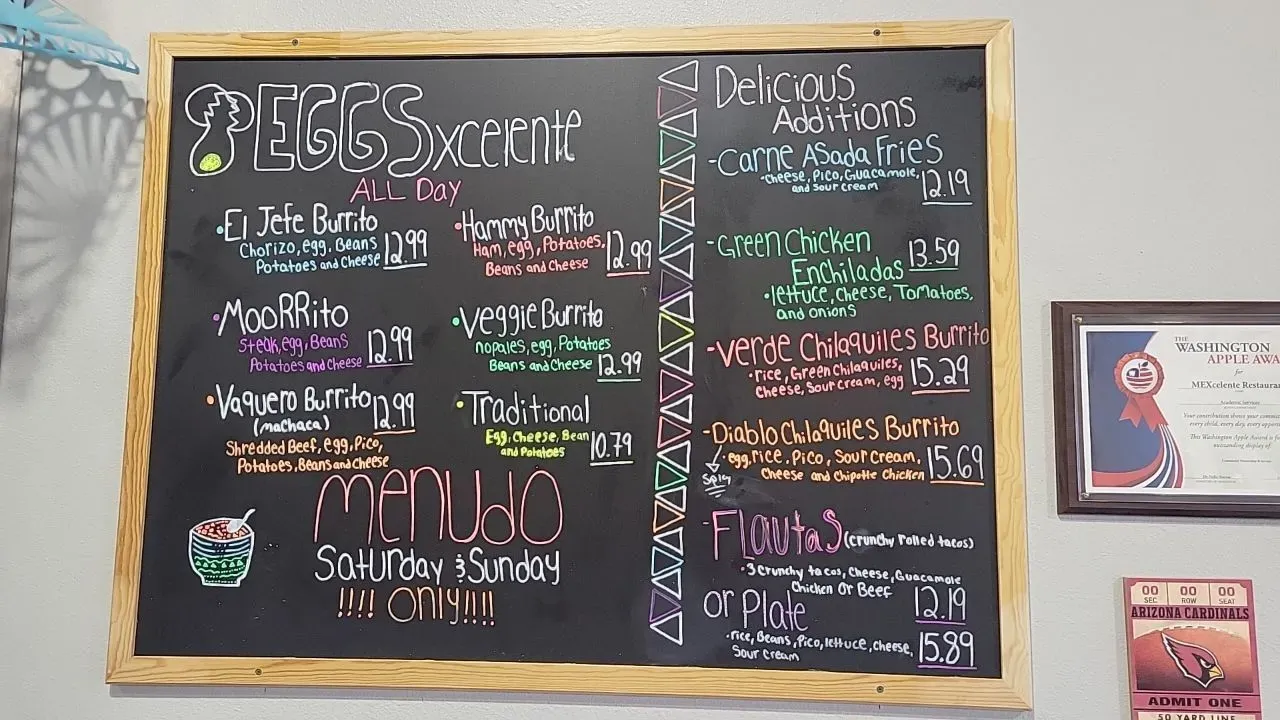 EGGSxcelente
ALL Day
•El Jefe Burrito
Chorizo, egg, Beans
Potatoes and Cheese 12.99
•Hammy Burrito
Ham, egg, Potatoes,
Beans and Cheese 12.99
•MooRRito
Steak, egg, Beans
Potatoes and Cheese 12.99
•Veggie Burrito
nopales, egg, Potatoes
Beans and Cheese 12.99
•Vaquero Burrito 12.99
(machaca)
Shredded Beef, egg, Pico,
Potatoes, Beans and Cheese
•Traditional
Egg, Cheese, Bean
and Potatoes 10.79
Menudo
Saturday & Sunday
!!!! Only!!!!
Delicious
Additions
-Carne Asada Fries
•Cheese, Pico, Guacamole,
and Sour cream 12.19
-Green Chicken
Enchiladas 13.59
•lettuce, Cheese, Tomatoes,
and onions
-Verde Chilaquiles Burrito
•rice, Green Chilaquiles,
Cheese, Sour cream, egg 15.29
-Diablo Chilaquiles Burrito
•egg, rice, Pico, Sour cream,
Cheese and Chipotle Chicken 15.69
Spicy
-Flautas (crunchy rolled tacos)
•3 crunchy tacos, Cheese, Guacamole
Chicken Or Beef 12.19
or Plate
•rice, Beans, Pico, lettuce, cheese,
Sour cream 15.89
THE
WASHINGTON
APPLE AWA
for
MEXcelente Restauran
Academic Services
Your contribution shows your commit
every child, every day, every opport
This Washington Apple Award is for
outstanding display of
00 00 00
SEC ROW SEAT
ARIZONA CARDINALS
ADMIT ONE
50 YARD LINE